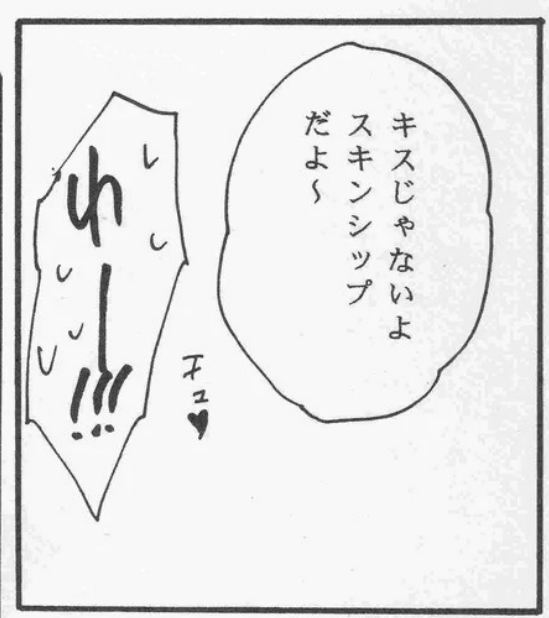 キスじゃないよ
スキンシップ
だよ～
チュ♥
わーー!!!